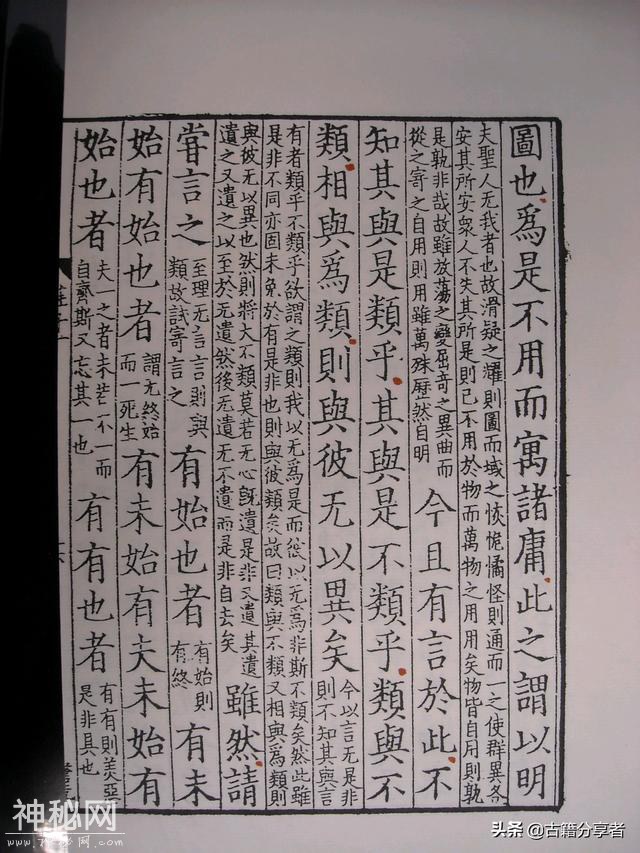 圖也爲是不用而寓諸庸此之謂以明
夫聖人无我者也故滑疑之耀則圖而域之恢恑憰怪則通而一之使群異各
安其所安衆人不失其所是則已不用於物而萬物之用用矣物皆自用則孰
是孰非哉故雖放蕩之變屈奇之異曲而
從之寄之自用則用雖萬殊歷然自明
今且有言於此不
知其與是類乎其與是不類乎類與不
類相與爲類則與彼无以異矣
今以言无是非
則不知其與言
有者類乎不類乎欲謂之類則我以无爲是而彼以无爲非斯不類矣然此雖
是非不同亦固未免於有是非也則與彼類矣故曰類與不類又相與爲類則
與彼无以異也然則將大不類莫若无心旣遣是非又遣其遣
遣之又遣之以至於无遣然後无遣无不遣而是非自去矣
雖然請
嘗言之
至理无言言則與
類故試寄言之
有始也者
有始則
有終
有未
始有始也者
謂无終始
而一死生
有未始有夫未始有
始也者
夫一之者未若不一而
自齊斯又忘其一也
有有也者
有有則美惡
是非具也
神秘网
头条 @古籍分享者